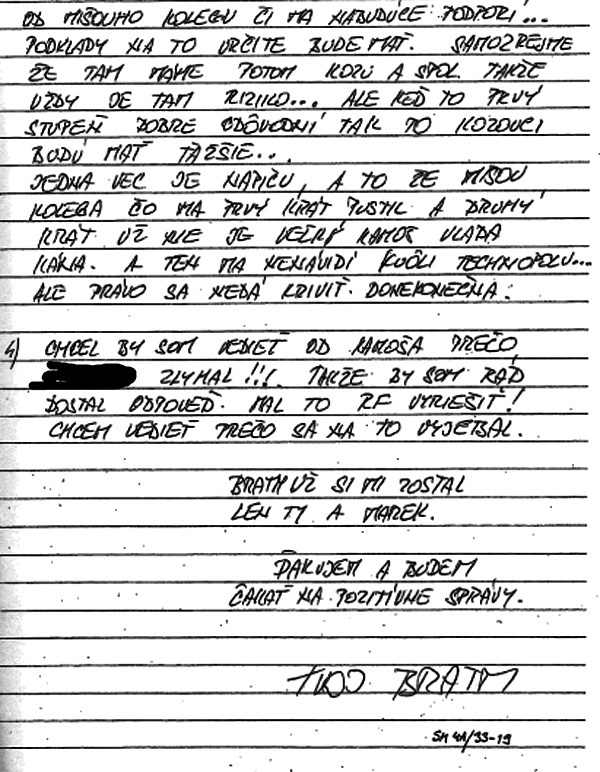 OD MIŠOVHO KOLEGU ČI MA NABUDÚCE PODPORÍ...
PODKLADY NA TO URČITE BUDE MAŤ. SAMOZREJME
ŽE TAM MÁME POTOM KOZU A SPOL TAKŽE
VŽDY JE TAM RIZIKO... ALE KEĎ TO PRVÝ
STUPEŇ DOBRE ODÔVODNÍ TAK TO KOZOVCI
BUDÚ MAŤ ŤAŽŠIE...
JEDNA VEC JE NAPIČU, A TO ŽE MIŠOV
KOLEGA ČO MA PRVÝ KRÁT PUSTIL A DRUHÝ
KRÁT UŽ NIE JE VEĽKÝ KAMOŠ VLADA
KÁNA. A TEN MA NENÁVIDÍ KVÔLI TECHNOPOLU...
ALE PRÁVO SA NEDÁ KRIVIŤ DONEKONEČNA.
4) CHCEL BY SOM VEDIEŤ OD KAMOŠA PREČO
ZLYHAL!!!. TAKŽE BY SOM RÁD
DOSTAL ODPOVEĎ. MAL TO RF VYRIEŠIŤ!
CHCEM VEDIEŤ PREČO SA NA TO VYJEBAL.
BRATM UŽ SI MI ZOSTAL
LEN TY A MAREK.
ĎAKUJEM A BUDEM
ČAKAŤ NA POZITÍVNE SPRÁVY.
TVOJ BRATM
SM 41/33-19